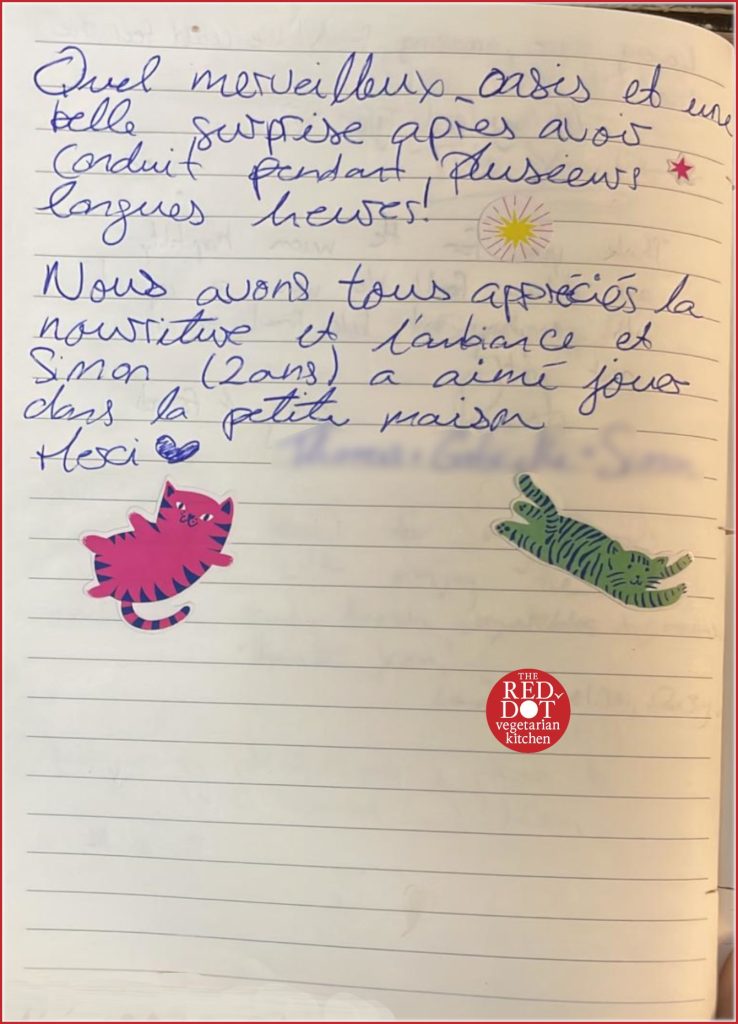 Quel merveilleux oasis et une
belle surprise après avoir
conduit pendant plusieurs
longues heures!
Nous avons tous appréciés la
nourriture et l'ambiance et
Simon (2ans) a aimé jouer
dans la petite maison
Merci
THE
RED
DOT
vegetarian
kitchen